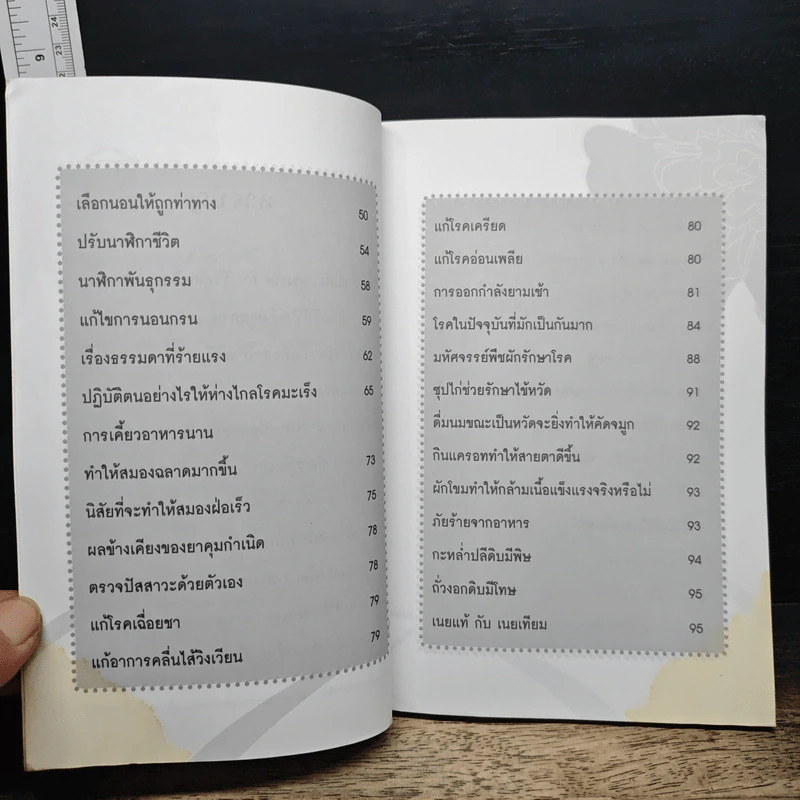 9
24
23
22
เลือกนอนให้ถูกท่าทาง 50
ปรับนาฬิกาชีวิต 54
นาฬิกาพันธุกรรม 58
แก้ไขการนอนกรน 59
เรื่องธรรมดาที่ร้ายแรง 62
ปฏิบัติตนอย่างไรให้ห่างไกลโรคมะเร็ง 65
การเคี้ยวอาหารนาน
ทำให้สมองฉลาดมากขึ้น 73
นิสัยที่จะทำให้สมองฝ่อเร็ว 75
ผลข้างเคียงของยาคุมกำเนิด 78
ตรวจปัสสาวะด้วยตัวเอง 78
แก้โรคเฉื่อยชา 79
แก้อาการคลื่นไส้วิงเวียน 79
แก้โรคเครียด 80
แก้โรคอ่อนเพลีย 80
การออกกำลังยามเช้า 81
โรคในปัจจุบันที่มักเป็นกันมาก 84
มหัศจรรย์พืชผักรักษาโรค 88
ซุปไก่ช่วยรักษาไข้หวัด 91
ดื่มนมขณะเป็นหวัดจะยิ่งทำให้คัดจมูก 92
กินแครอททำให้สายตาดีขึ้น 92
ผักโขมทำให้กล้ามเนื้อแข็งแรงจริงหรือไม่ 93
ภัยร้ายจากอาหาร 93
กะหล่ำปลีดิบมีพิษ 94
ถั่วงอกดิบมีโทษ 95
เนยแท้ กับ เนยเทียม 95